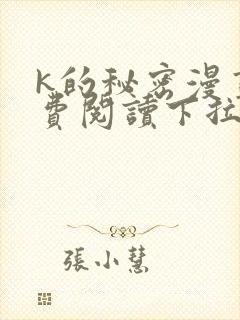 K的秘密漫
費閱讀下拉
張小慧